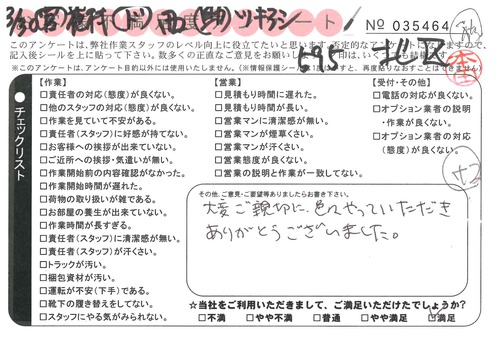 № 035464
このアンケートは、弊社作業スタッフのレベル向上に役立てたいと思います。否定的なアンケートになりますので、
※このアンケートは、アンケート目的以外には使用いたしません。
チェックリスト
【作業】
□責任者の対応(態度)が良くない。
□他のスタッフの対応(態度)が良くない。
□作業を見ていて不安がある。
□責任者(スタッフ)に好感が持てない。
□お客様への挨拶が出来ていない。
□ご近所への挨拶・気遣いが無い。
□作業開始前の内容確認がなかった。
□作業開始時間が遅れた。
□荷物の取り扱いが雑である。
□お部屋の養生が出来ていない。
□作業時間が長すぎる。
□責任者(スタッフ)に清潔感が無い。
□責任者(スタッフ)が汗くさい。
□トラックが汚い。
□梱包資材が汚い。
□運転が不安(下手)である。
□靴下の履き替えをしてない。
□スタッフにやる気がみられない。
【営業】
□見積もり時間に遅れた。
□見積もり時間が長い。
□営業マンに清潔感が無い。
□営業マンが煙草くさい。
□営業マンが汗くさい。
□営業態度が良くない。
□営業の説明と作業が一致してない。
【受付・その他】
□電話の対応が良くない。
□オプション業者の説明
・作業が良くない。
□オプション業者の対応
(態度)が良くない。
その他、ご意見・ご要望等ありましたらお書き下さい。
大変ご親切に、色々やっていただき
ありがとうございました。
☆当社をご利用いただきまして、ご満足いただけたでしょうか?
□不満 □やや不満 □普通 □やや満足 □満足